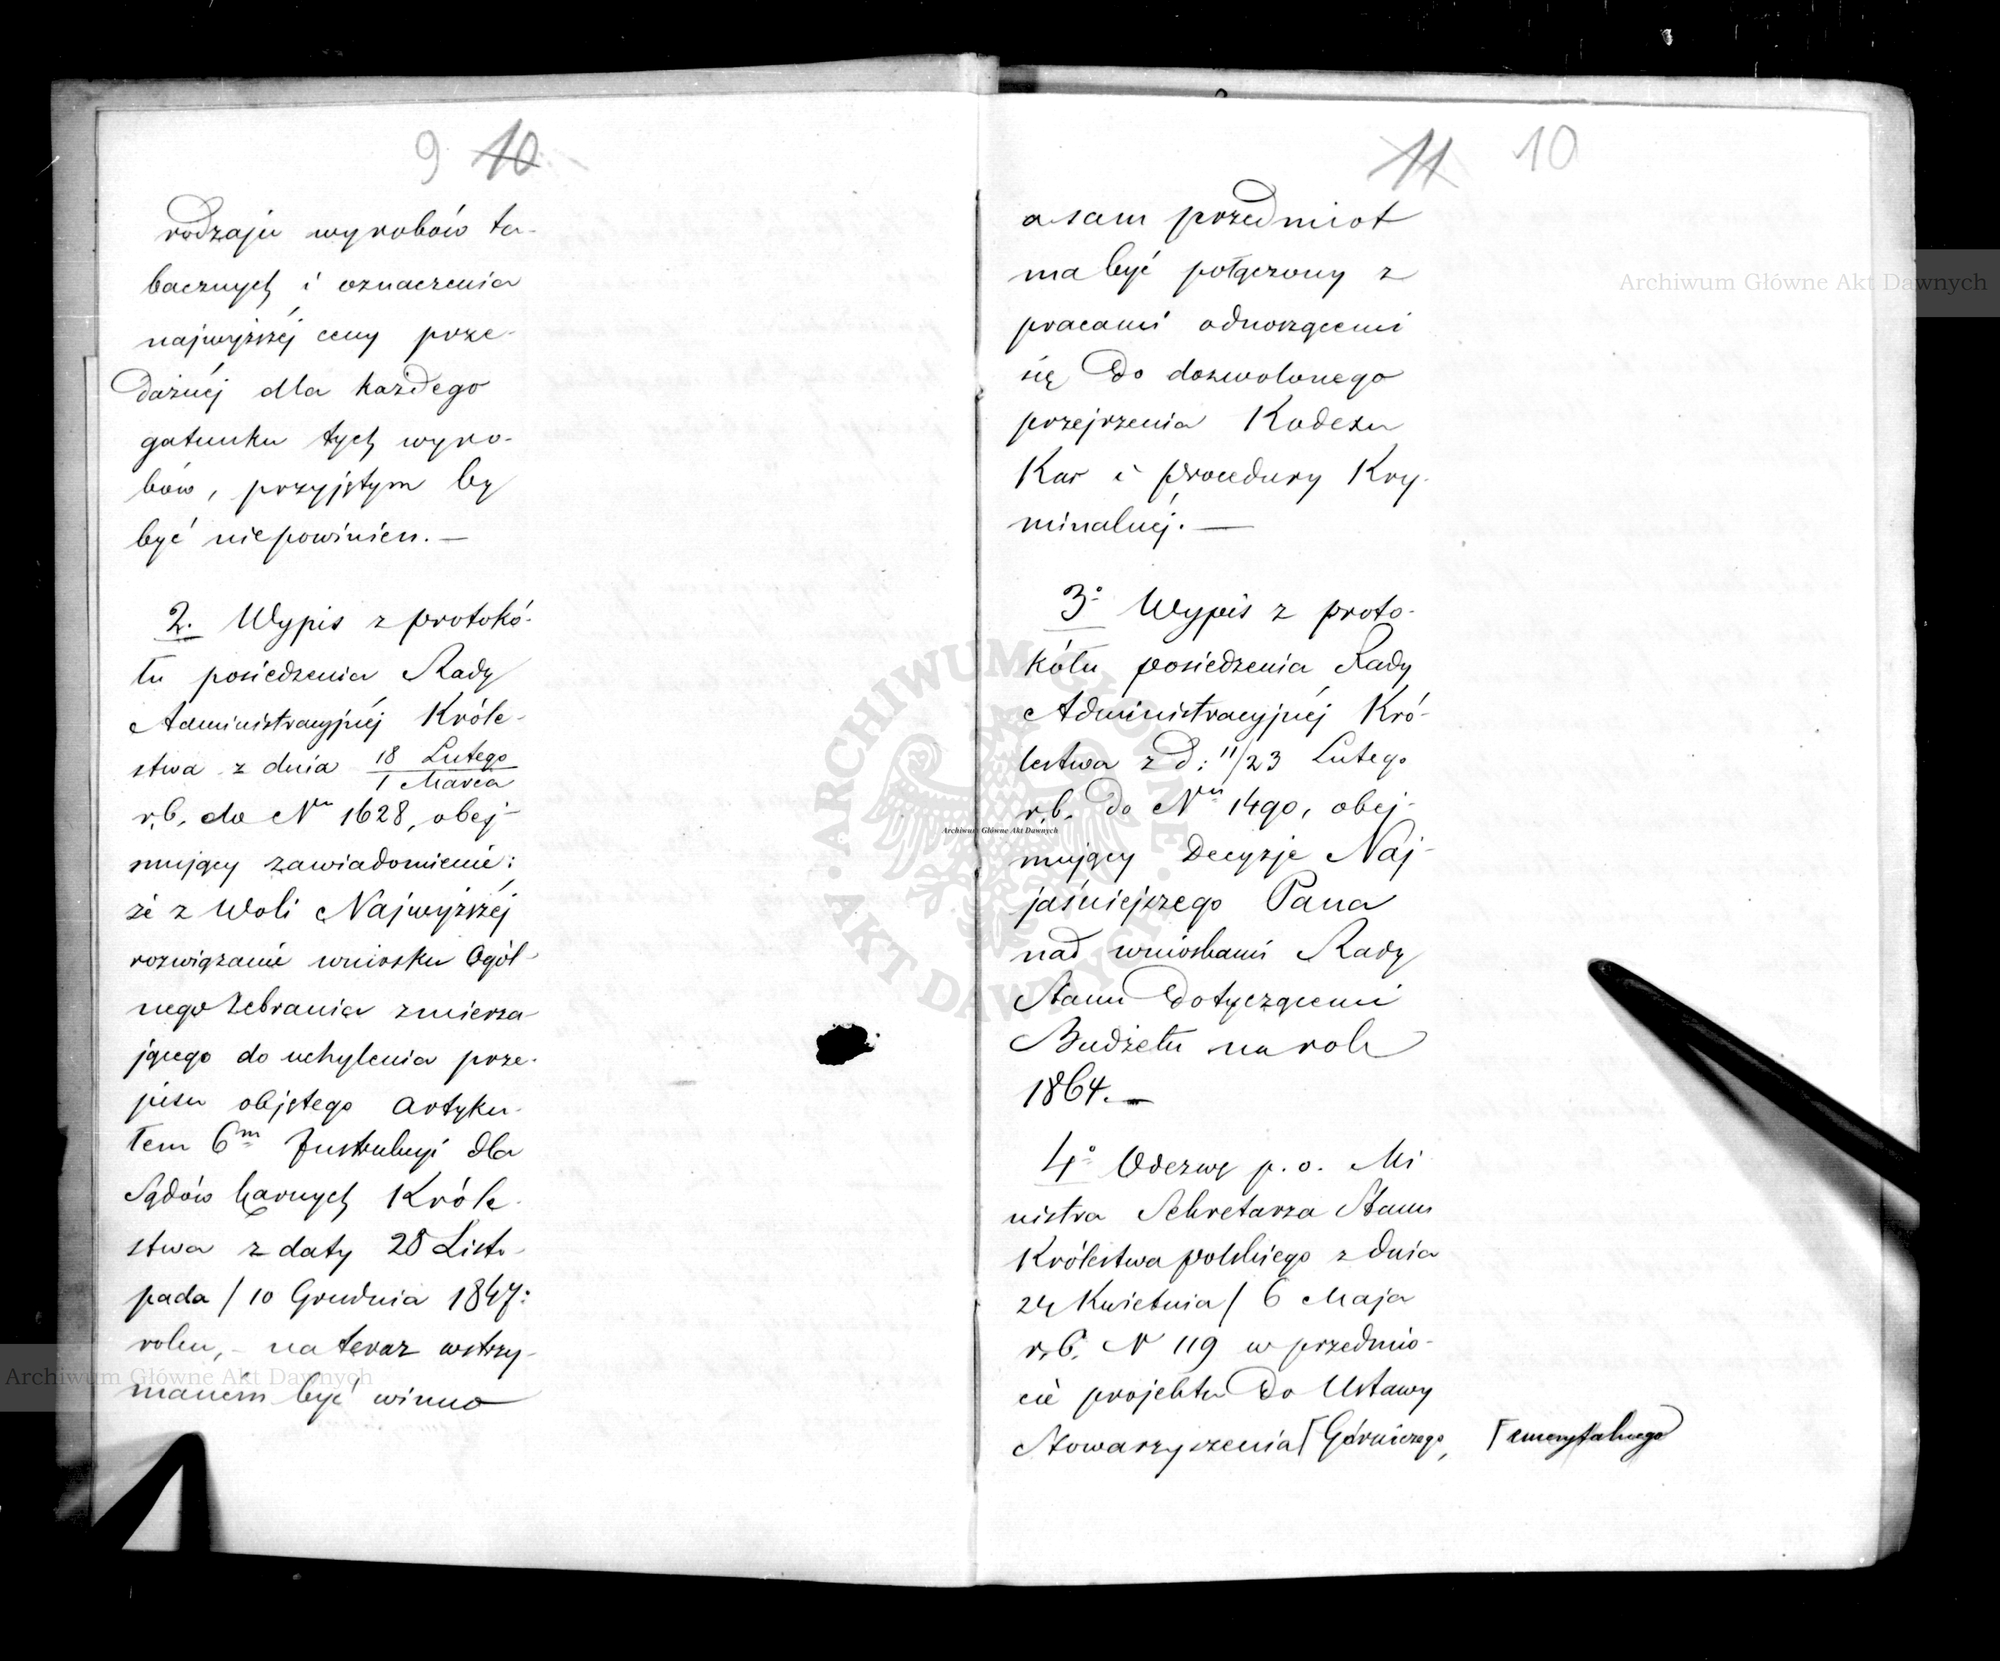 9 10
rodzaju wyrobów ta-
bacznych i oznaczenia
najwyższéj ceny prze-
dażnéj dla każdego
gatunku tych wyro-
bów, przyjętym by
być niepowinien. —
2. Wypis z protokó-
łu posiedzenia Rady
Administracyjnéj Króle-
stwa z dnia 18 Lutego
1 Marca
r.b. do Nru 1628, obej-
mujący zawiadomienie:
że z Woli Najwyższéj
rozwiązanie wniosku Ogól-
nego Zebrania zmierza-
jącego do uchylenia prze-
pisu objętego Artyku-
łem 6m Instrukcyi dla
Sądów Karnych Króle-
stwa z daty 28 Listo-
pada / 10 Grudnia 1847:
roku, - na teraz wstrzy-
maném być winno
11 10
a sam przedmiot
ma być połączony z
pracami odnoszącemi
się do dozwolonego
przejrzenia Kodexu
Kar i procedury Kry-
minalnéj. —
3o Wypis z proto-
kółu posiedzenia Rady
Administracyjnéj Kró-
lestwa z d: 11/23 Lutego
r.b. do Nru 1490, obej-
mujący Decyzje Naj-
jaśniejszego Pana
nad wnioskami Rady
Stanu dotyczącemi
Budżetu na rok
1864. —
4o Odezwę p. o. Mi
nistra Sekretarza Stanu
Królestwa polskiego z dnia
24 Kwietnia / 6 Maja
r.b. N 119 w przedmio-
cie projektu do Ustawy
Stowarzyszenia ⌈ Górniczego, ⌈ emerytalnego
Archiwum Główne Akt Dawnych
Archiwum Główne Akt Dawnych
Archiwum Główne Akt Dawnych
ARCHIWUM GŁÓWNE AKT DAWNYCH